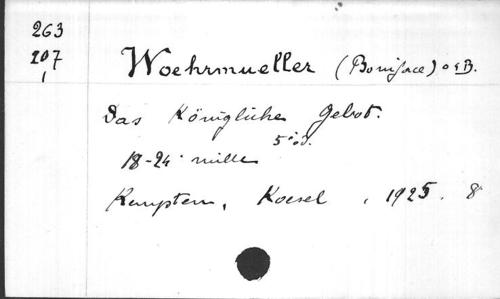 263
207
1
Woehrmueller (Boniface) OSB.
Das Königliche Gebot.
5° éd.
18-24 mille
Kempten, Koesel, 1925. 8